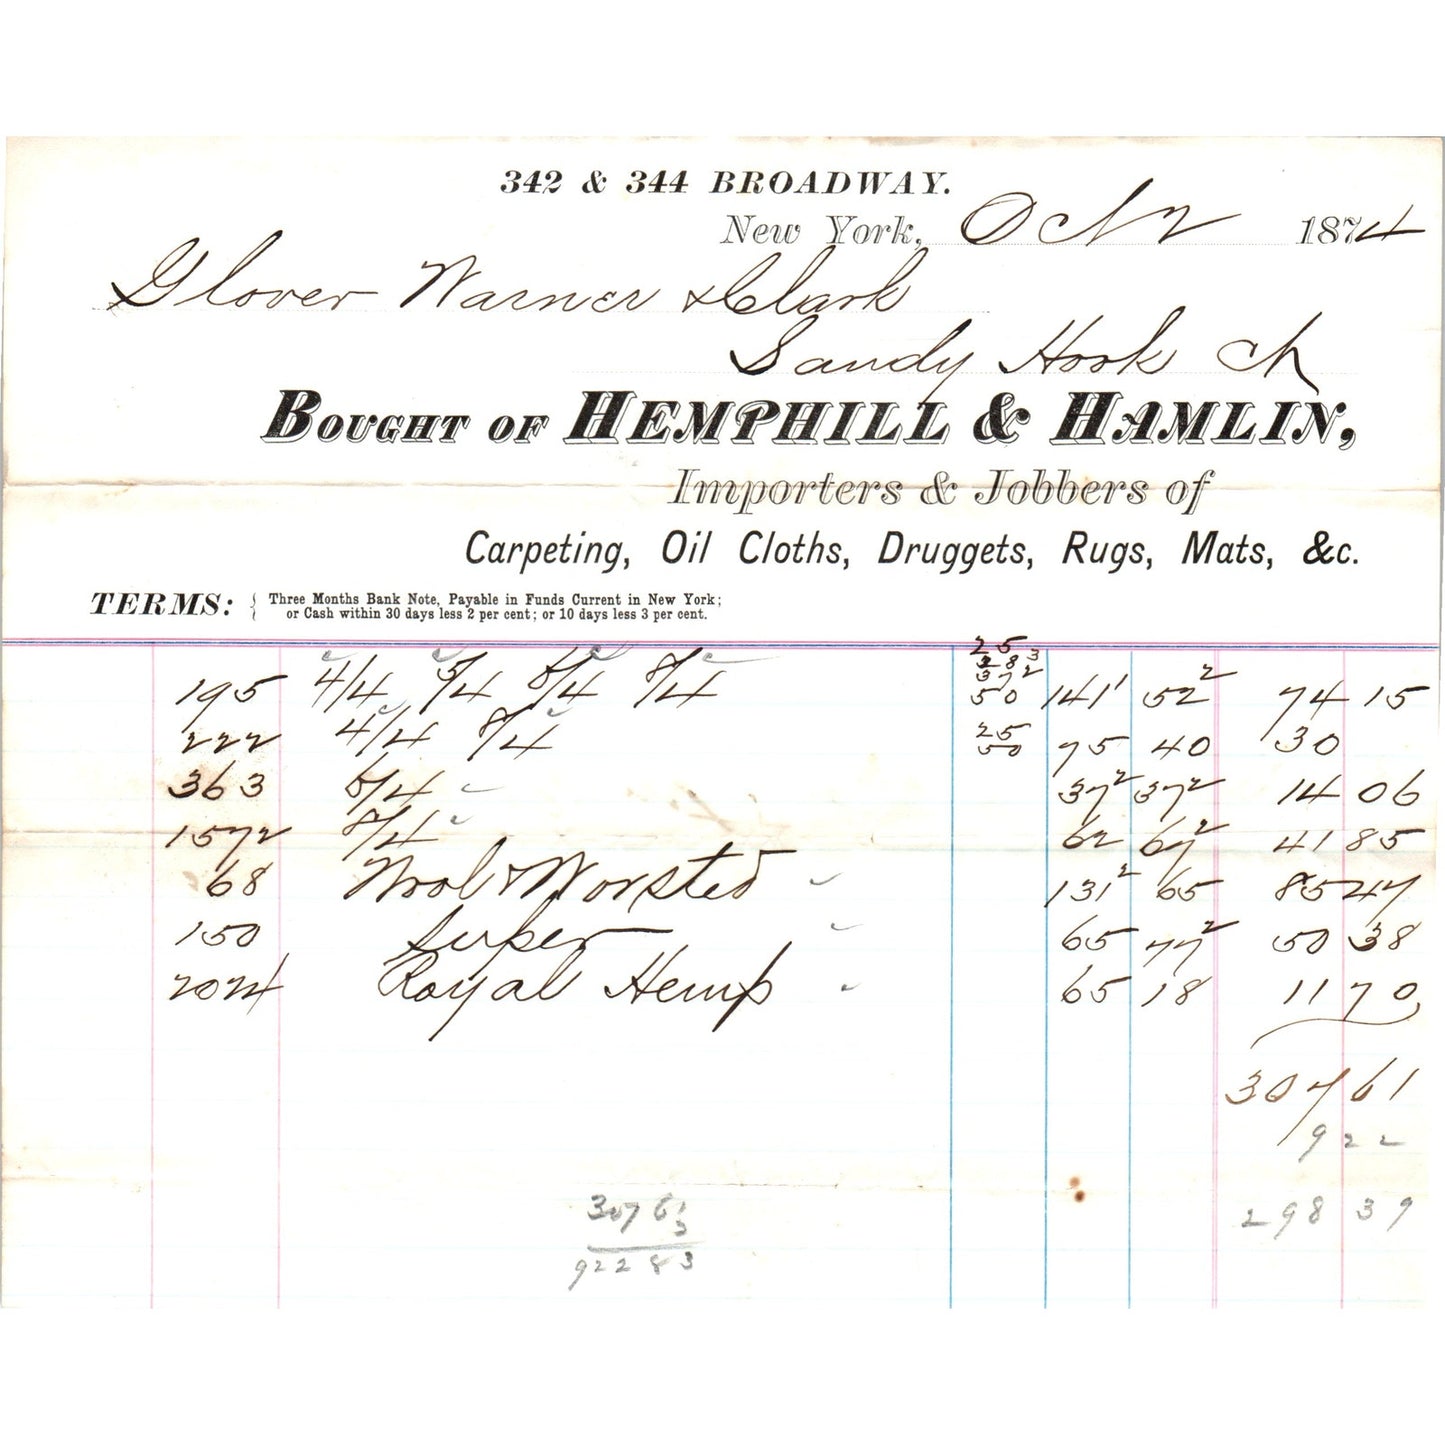 342 & 344 BROADWAY.
New York, Oct 2 1874
Glover Warner & Clark
Sandy Hook Ch
BOUGHT OF HEMPHILL & HAMLIN,
Importers & Jobbers of
Carpeting, Oil Cloths, Druggets, Rugs, Mats, &c.
TERMS: { Three Months Bank Note, Payable in Funds Current in New York;
or Cash within 30 days less 2 per cent; or 10 days less 3 per cent.
25
28 3
37 2
195 4/4 5/4 6/4 8/4 50 141 1 52 2 74 15
25
222 4/4 8/4 50 75 40 30
363 6/4 37 2 37 2 14 06
1572 8/4 62 67 2 41 85
68 Wool & Worsted 131 2 65 85 47
150 Super 65 77 2 50 38
2024 Royal Hemp 65 18 11 70
307 61
9 22
298 39
307 61
3
922 83